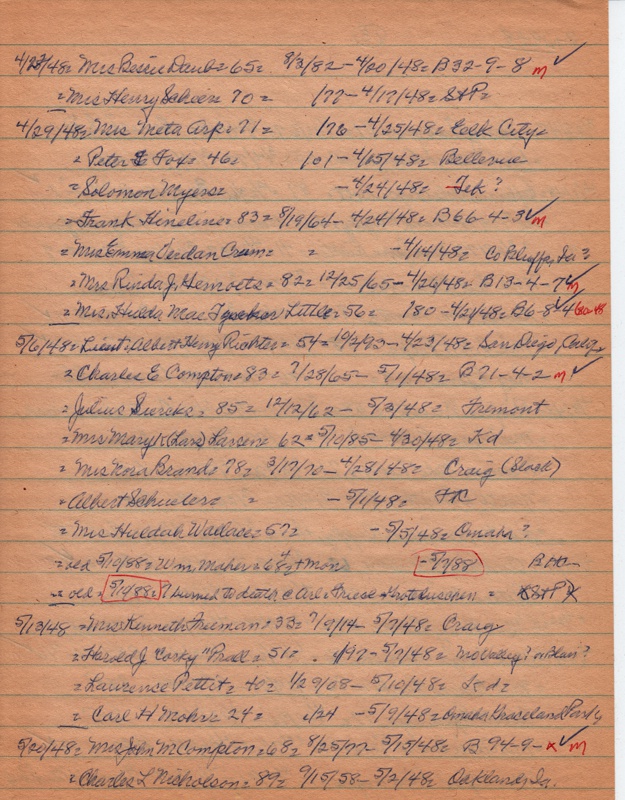 4/23/48= Mrs Bessie Daub= 65= 8/3/82 - 4/20/48= B32-9-8 m ✓
= Mrs Henry 70 = /77 - 4/17/48= S+P=
4/29/48= Mrs Meta Arp= 71= /76 - 4/25/48= Lolk City=
= Peter E Fox= 46= /01 - 4/25/48= Bellevue
= Solomon Myers= - 4/24/48= Tek?
= Frank Hineline= 83= 8/19/64 - 4/24/48= B66-4-3 ✓ m
= Mrs Emma Verdan Crum= = - 4/14/48= Co Bluffs, Ia?
= Mrs Rinda J. Hemoets= 82= 12/25/65 - 4/26/48= B13-4-7 ✓ m
= Mrs. Hulda Mae Little= 56= /80 - 4/21/48= B6-8-4 ✓
5/6/48= Lieut. Albert Henry Richter= 54= 10/2/93 - 4/23/48= San Diego,
= Charles E Compton= 83= 7/28/65 - 5/1/48= B71-4-2 m ✓
= Julius = 85= 12/12/62 - 5/3/48= Fremont
= Mrs Mary K (Lars) Larsen= 62= 5/10/85 - 4/30/48= Kd
= Mrs Nora Brand= 78= 3/17/70 - 4/28/48= Craig (Slack)
= Albert = = - 5/1/48= FC
= Mrs Huldah Wallace= 57= - 5/5/48= Omaha?
= old 5/10/88= Wm. Maher= 68 y + mon - 5/7/88
= old = 5/14/88= ? burned to death c Carl = S+P
5/13/48 = Mrs Kenneth Freeman= 33= 7/9/14 - 5/7/48= Craig
= Harold J. "Corky" Prall= 51= /97 - 5/7/48= Mo Valley? or Blair?
= Lawrence Pettit= 40= 1/29/08 - 5/10/48= Kd=
= Carl H Mohr= 24= /24 - 5/9/48= Omaha Graceland Park
5/20/48= Mrs John M Compton= 68= 8/25/77 - 5/15/48= B 94-9- x ✓ m
= Charles L Nicholson= 89= 9/15/58 - 5/2/48= Oakland, Ia.